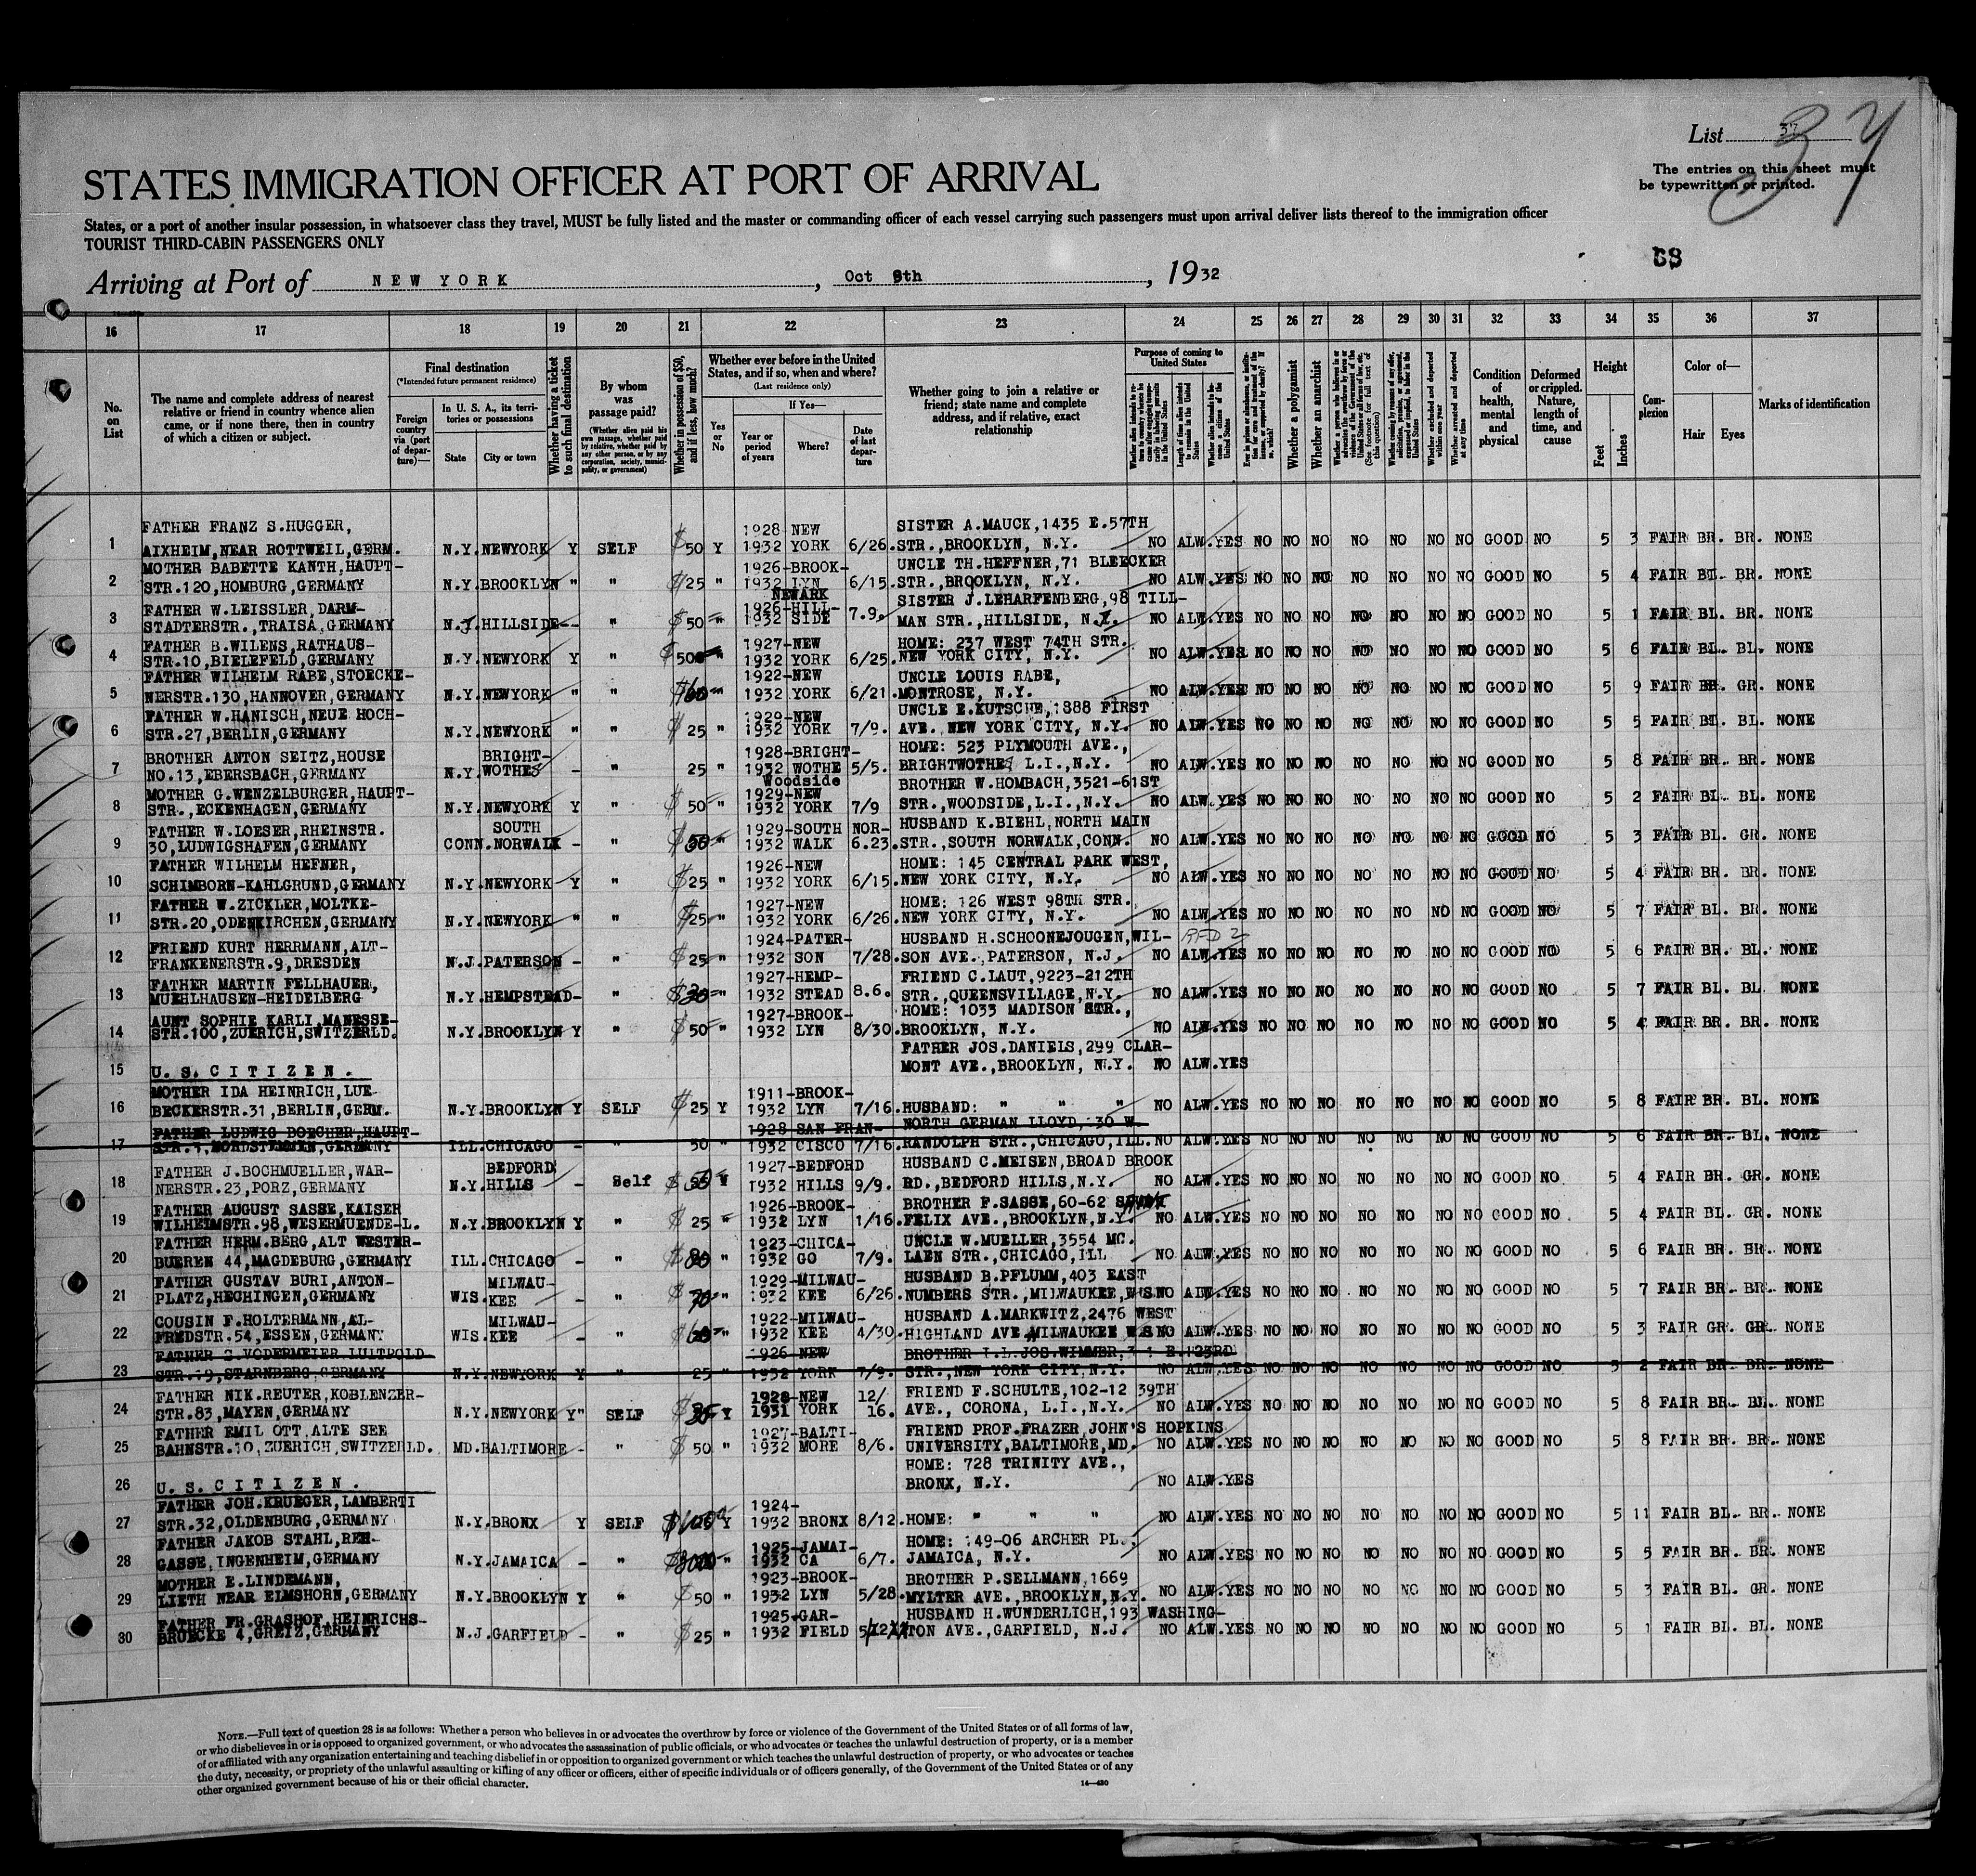 List 37
37
The entries on this sheet must
be typewritten or printed.
STATES IMMIGRATION OFFICER AT PORT OF ARRIVAL
States, or a port of another insular possession, in whatsoever class they travel, MUST be fully listed and the master or commanding officer of each vessel carrying such passengers must upon arrival deliver lists thereof to the immigration officer
TOURIST THIRD-CABIN PASSENGERS ONLY
Arriving at Port of NEW YORK, Oct 8th, 1932
16 17 18 19 20 21 22 23 24 25 26 27 28 29 30 31 32 33 34 35 36 37
No. on List
The name and complete address of nearest relative or friend in country whence alien came, or if none there, then in country of which a citizen or subject.
Final destination
(*Intended future permanent residence)
Foreign country via (port of departure)—
In U. S. A., its territories or possessions
State City or town
Whether having a ticket to such final destination
By whom was passage paid?
(Whether alien paid his own passage, whether paid by relative, whether paid by any other person, or by any corporation, society, municipality, or government)
Whether in possession of $50, and if less, how much?
Whether ever before in the United States, and if so, when and where?
(Last residence only)
Yes or No
If Yes—
Year or period of years
Where?
Date of last departure
Whether going to join a relative or friend; state name and complete address, and if relative, exact relationship
Purpose of coming to United States
Whether a polygamist
Whether an anarchist
Whether excluded and deported within one year
Whether arrested and deported at any time
Condition of health, mental and physical
Deformed or crippled. Nature, length of time, and cause
Height
Feet Inches
Complexion
Color of—
Hair Eyes
Marks of identification
FATHER FRANZ S.HUGGER, 1928-NEW SISTER A.MAUCK,1435 E.57TH
1 AIXHEIM,NEAR ROTTWEIL,GERM. N.Y.NEWYORK Y SELF $50 Y 1932 YORK 6/26. STR.,BROOKLYN, N.Y. NO ALW.YES NO NO NO NO NO NO NO GOOD NO 5 3 FAIR BR. BR. NONE
MOTHER BABETTE KANTH,HAUPT- 1926-BROOK- UNCLE TH.HEFFNER,71 BLEECKER
2 STR.120,HOMBURG,GERMANY N.Y.BROOKLYN " " $25 " 1932 LYN 6/15. STR.,BROOKLYN, N.Y. NO ALW.YES NO NO NO NO NO NO NO GOOD NO 5 4 FAIR BL. BR. NONE
NEWARK
FATHER W.LEISSLER,DARM- 1926-HILL- SISTER J.LEHARFENBERG,98 TILL-
3 STADTERSTR.,TRAISA,GERMANY N.J.HILLSIDE - " $50 " 1932 SIDE 7.9. MAN STR.,HILLSIDE, N.J. NO ALW.YES NO NO NO NO NO NO NO GOOD NO 5 1 FAIR BL. BR. NONE
FATHER B.WILENS,RATHAUS- 1927-NEW HOME: 237 WEST 74TH STR.
4 STR.10,BIELEFELD,GERMANY N.Y.NEWYORK Y " " 1932 YORK 6/25. NEW YORK CITY, N.Y. NO ALW.YES NO NO NO NO NO NO NO GOOD NO 5 6 FAIR BL. BL. NONE
FATHER WILHELM RABE,STOECKE- 1922-NEW UNCLE LOUIS RABE,
5 NERSTR.130,HANNOVER,GERMANY N.Y.NEWYORK " " " 1932 YORK 6/21. MONTROSE, N.Y. NO ALW.YES NO NO NO NO NO NO NO GOOD NO 5 9 FAIR BR. GR. NONE
FATHER W.HANISCH,NEUE HOCH- 1929-NEW UNCLE E.KUTSCHE,1388 FIRST
6 STR.27,BERLIN,GERMANY N.Y.NEWYORK " " $25 " 1932 YORK 7/9. AVE. NEW YORK CITY, N.Y. NO ALW.YES NO NO NO NO NO NO NO GOOD NO 5 5 FAIR BL. BL. NONE
BROTHER ANTON SEITZ,HOUSE BRIGHT- 1928-BRIGHT- HOME: 523 PLYMOUTH AVE.,
7 NO.13,EBERSBACH,GERMANY N.Y.WOTHES - " 25 " 1932 WOTHE 5/5. BRIGHTWOTHES L.I.,N.Y. NO ALW.YES NO NO NO NO NO NO NO GOOD NO 5 8 FAIR BR. BR. NONE
Woodside
MOTHER G.WENZELBURGER,HAUPT- 1929-NEW BROTHER W.HOMBACH,3521-61ST
8 STR.,ECKENHAGEN,GERMANY N.Y.NEWYORK Y " $50 " 1932 YORK 7/9 STR.,WOODSIDE,L.I.,N.Y. NO ALW.YES NO NO NO NO NO NO NO GOOD NO 5 2 FAIR BL. BL. NONE
FATHER W.LOESER,RHEINSTR. SOUTH 1929-SOUTH NOR- HUSBAND K.BIEHL,NORTH MAIN
9 30,LUDWIGSHAFEN,GERMANY CONN.NORWALK - " " 1932 WALK 6.23. STR.,SOUTH NORWALK,CONN. NO ALW.YES NO NO NO NO NO NO NO GOOD NO 5 3 FAIR BL. GR. NONE
FATHER WILHELM HEFNER, 1926-NEW HOME: 145 CENTRAL PARK WEST,
10 SCHIMBORN-KAHLGRUND,GERMANY N.Y.NEWYORK Y " $25 " 1932 YORK 6/15. NEW YORK CITY, N.Y. NO ALW.YES NO NO NO NO NO NO NO GOOD NO 5 4 FAIR BR. BR. NONE
FATHER W.ZICKLER,MOLTKE- 1927-NEW HOME: 126 WEST 98TH STR.
11 STR.20,ODENKIRCHEN,GERMANY N.Y.NEWYORK " " $25 " 1932 YORK 6/26. NEW YORK CITY, N.Y. NO ALW.YES NO NO NO NO NO NO NO GOOD NO 5 7 FAIR BL. BR. NONE
FRIEND KURT HERRMANN,ALT- 1924-PATER- HUSBAND H.SCHOONEJOUGEN,WIL- RFD 2
12 FRANKENERSTR.9,DRESDEN N.J.PATERSON - " $25 " 1932 SON 7/28. SON AVE.,PATERSON, N.J. NO ALW.YES NO NO NO NO NO NO NO GOOD NO 5 6 FAIR BR. BL. NONE
FATHER MARTIN FELLHAUER, 1927-HEMP- FRIEND C.LAUT,9223-212TH
13 MUEHLHAUSEN-HEIDELBERG N.Y.HEMPSTEAD- " " 1932 STEAD 8.6. STR.,QUEENSVILLAGE,N.Y. NO ALW.YES NO NO NO NO NO NO NO GOOD NO 5 7 FAIR BL. BL. NONE
AUNT SOPHIE KARLI,MANESSE- 1927-BROOK- HOME: 1033 MADISON STR.,
14 STR.100,ZUERICH,SWITZERLD. N.Y.BROOKLYN Y " $50 " 1932 LYN 8/30. BROOKLYN, N.Y. NO ALW.YES NO NO NO NO NO NO NO GOOD NO 5 4 FAIR BR. BR. NONE
FATHER JOS.DANIELS,299 CLAR-
15 U. S. CITIZEN. MONT AVE.,BROOKLYN, N.Y. NO ALW.YES
MOTHER IDA HEINRICH,LUE- 1911-BROOK-
16 BECKERSTR.31,BERLIN,GERM. N.Y.BROOKLYN Y SELF $25 Y 1932 LYN 7/16. HUSBAND: " " " NO ALW.YES NO NO NO NO NO NO NO GOOD NO 5 8 FAIR BR. BL. NONE
FATHER LUDWIG BOECHER,HAUPT- 1928 SAN FRAN- NORTH GERMAN LLOYD, 30 W.
17 STR.7,NORDSTEMMEN,GERMANY ILL.CHICAGO - " 50 1932 CISCO 7/16. RANDOLPH STR.,CHICAGO,ILL. NO ALW.YES NO NO NO NO NO NO NO GOOD NO 5 6 FAIR BR. BL. NONE
FATHER J.BOCHMUELLER,WAR- BEDFORD 1927-BEDFORD HUSBAND C.MEISEN,BROAD BROOK
18 NERSTR.23,PORZ,GERMANY N.Y.HILLS - Self Y 1932 HILLS 9/9. RD.,BEDFORD HILLS,N.Y. NO ALW.YES NO NO NO NO NO NO NO GOOD NO 5 4 FAIR BR. GR. NONE
FATHER AUGUST SASSE,KAISER 1926-BROOK- BROTHER F.SASSE,60-62
19 WILHELMSTR.98,WESERMUENDE-L. N.Y.BROOKLYN Y " $25 " 1932 LYN 1/16. FELIX AVE.,BROOKLYN,N.Y. NO ALW.YES NO NO NO NO NO NO NO GOOD NO 5 4 FAIR BL. GR. NONE
FATHER HERM.BERG,ALT WESTER- 1923-CHICA- UNCLE W.MUELLER,3554 MC.
20 BUEREN 44,MAGDEBURG,GERMANY ILL.CHICAGO - " " 1932 GO 7/9. LAEN STR.,CHICAGO,ILL NO ALW.YES NO NO NO NO NO NO NO GOOD NO 5 6 FAIR BR. BR. NONE
FATHER GUSTAV BURI,ANTON- MILWAU- 1929-MILWAU- HUSBAND B.PFLUMM,403 EAST
21 PLATZ,HECHINGEN,GERMANY WIS.KEE - " $70 " 1932 KEE 6/26. NUMBERS STR.,MILWAUKEE,WIS NO ALW.YES NO NO NO NO NO NO NO GOOD NO 5 7 FAIR BR. BR. NONE
COUSIN F.HOLTERMANN,AL- MILWAU- 1922-MILWAU- HUSBAND A.MARKWITZ,2476 WEST
22 FREDSTR.54,ESSEN,GERMANY WIS.KEE - " " 1932 KEE 4/30. HIGHLAND AVE MILWAUKEE WIS NO ALW.YES NO NO NO NO NO NO NO GOOD NO 5 3 FAIR GR. GR. NONE
FATHER G.VODERMEIER LUITPOLD- 1926 NEW BROTHER JOS.WIMMER, E.123RD
23 STR.19,STARNBERG,GERMANY N.Y.NEWYORK Y " 25 " 1932 YORK 7/9. STR.,NEW YORK CITY,N.Y. NO ALW.YES NO NO NO NO NO NO NO GOOD NO 5 2 FAIR BR. BR. NONE
FATHER NIK.REUTER,KOBLENZER- 1928-NEW 12/ FRIEND F.SCHULTE,102-12 39TH
24 STR.83,MAYEN,GERMANY N.Y.NEWYORK Y" SELF Y 1931 YORK 16. AVE., CORONA, L.I.,N.Y. NO ALW.YES NO NO NO NO NO NO NO GOOD NO 5 8 FAIR BR. BL. NONE
FATHER EMIL OTT,ALTE SEE 1927-BALTI- FRIEND PROF.FRAZER,JOHN'S HOPKINS
25 BAHNSTR.10,ZUERICH,SWITZERLD. MD.BALTIMORE - " $50 " 1932 MORE 8/6. UNIVERSITY,BALTIMORE,MD. NO ALW.YES NO NO NO NO NO NO NO GOOD NO 5 8 FAIR BR. BR. NONE
HOME: 728 TRINITY AVE.,
26 U. S. CITIZEN. BRONX, N.Y. NO ALW.YES
FATHER JOH.KRUEGER,LAMBERTI 1924-
27 STR.32,OLDENBURG,GERMANY N.Y.BRONX Y SELF Y 1932 BRONX 8/12. HOME: " " " NO ALW.YES NO NO NO NO NO NO NO GOOD NO 5 11 FAIR BL. BR. NONE
FATHER JAKOB STAHL,REH- 1925-JAMAI- HOME: 149-06 ARCHER PL.,
28 GASSE,INGENHEIM,GERMANY N.Y.JAMAICA - " " 1932 CA 6/7. JAMAICA, N.Y. NO ALW.YES NO NO NO NO NO NO NO GOOD NO 5 5 FAIR BR. BR. NONE
MOTHER E.LINDEMANN, 1923-BROOK- BROTHER P.SELLMANN,1669
29 LIETH NEAR ELMSHORN,GERMANY N.Y.BROOKLYN Y " $50 " 1932 LYN 5/28. MYLTER AVE.,BROOKLYN,N.Y. NO ALW.YES NO NO NO NO NO NO NO GOOD NO 5 3 FAIR BL. GR. NONE
FATHER FR.GRASHOF,HEINRICHS- 1925-GAR- HUSBAND H.WUNDERLICH,193 WASHING-
30 BRUECKE 4,GREIZ,GERMANY N.J.GARFIELD - " $25 " 1932 FIELD TON AVE.,GARFIELD, N.J. NO ALW.YES NO NO NO NO NO NO NO GOOD NO 5 1 FAIR BL. BL. NONE
NOTE.—Full text of question 28 is as follows: Whether a person who believes in or advocates the overthrow by force or violence of the Government of the United States or of all forms of law,
or who disbelieves in or is opposed to organized government, or who advocates the assassination of public officials, or who advocates or teaches the unlawful destruction of property, or is a member
of or affiliated with any organization entertaining and teaching disbelief in or opposition to organized government or which teaches the unlawful destruction of property, or who advocates or teaches
the duty, necessity, or propriety of the unlawful assaulting or killing of any officer or officers, either of specific individuals or of officers generally, of the Government of the United States or of any
other organized government because of his or their official character.
14—430